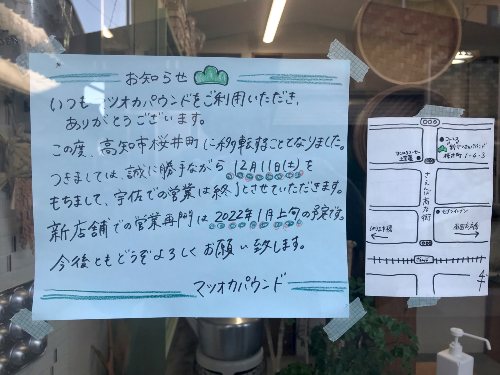 お知らせ
いつもマツオカパウンドをご利用いただき、
ありがとうございます。
この度、高知市桜井町に移転することとなりました。
つきましては、誠に勝手ながら12月11日(土)を
もちまして、宇佐での営業は終了とさせていただきます。
新店舗での営業再開は2022年1月上旬の予定です。
今後ともどうぞよろしくお願い致します。
マツオカパウンド
桜井町1-6-3
セブンイレブン